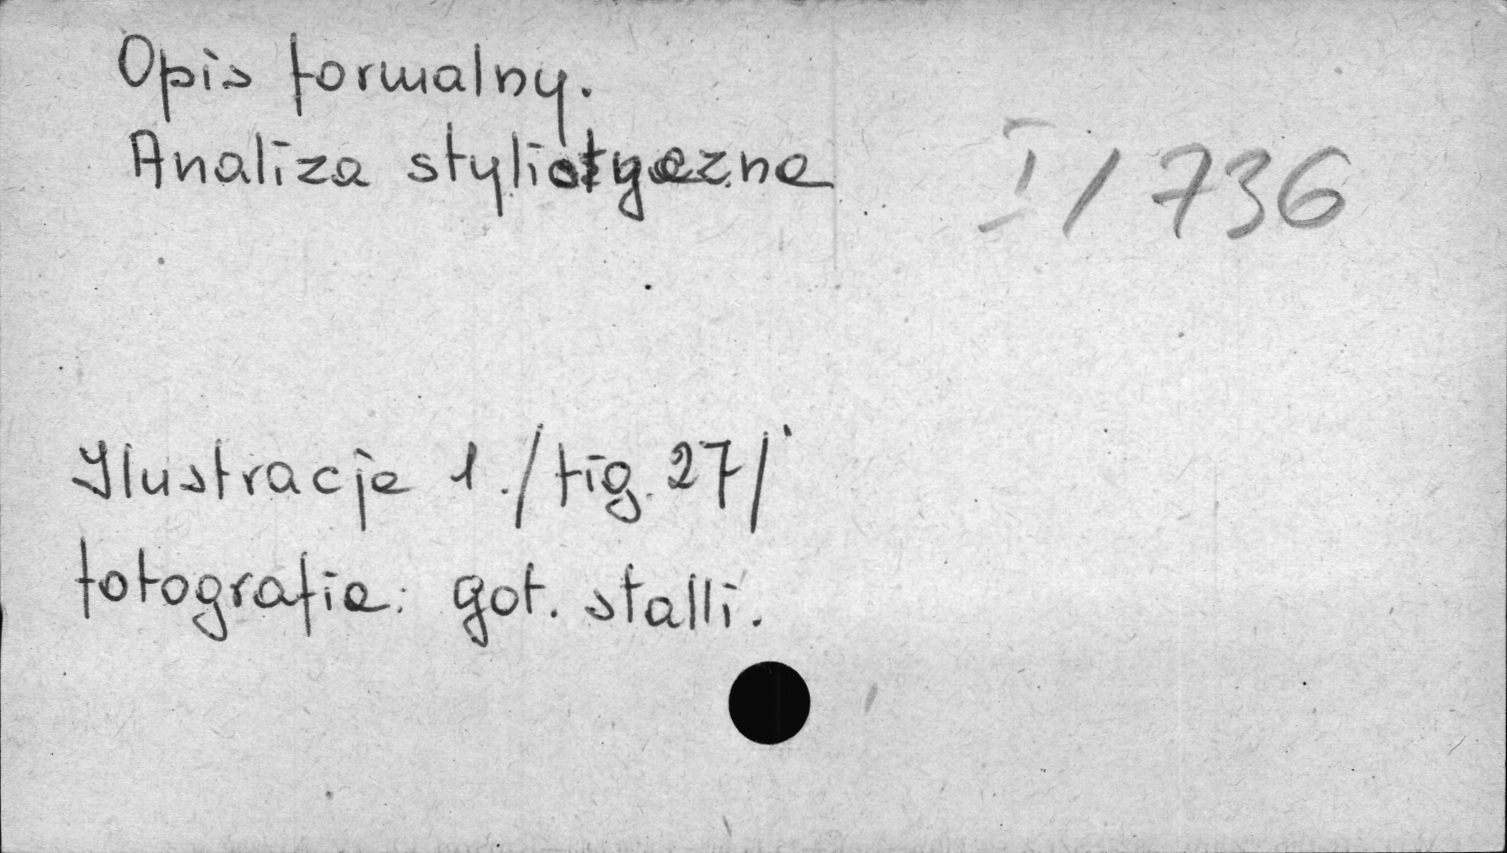 Opis formalny.
Analiza stylistyczna
I/736
Ilustracje 1./fig. 27/
fotografia: got. stalli.